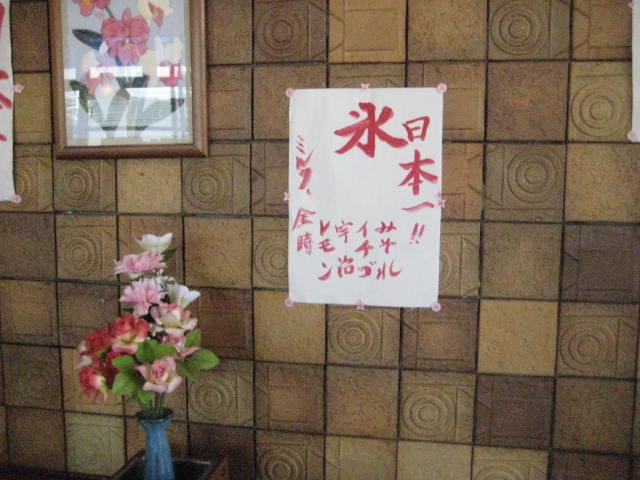 日本一!!
氷
みぞれ
イチゴ
宇治
レモン
ミルク、金時